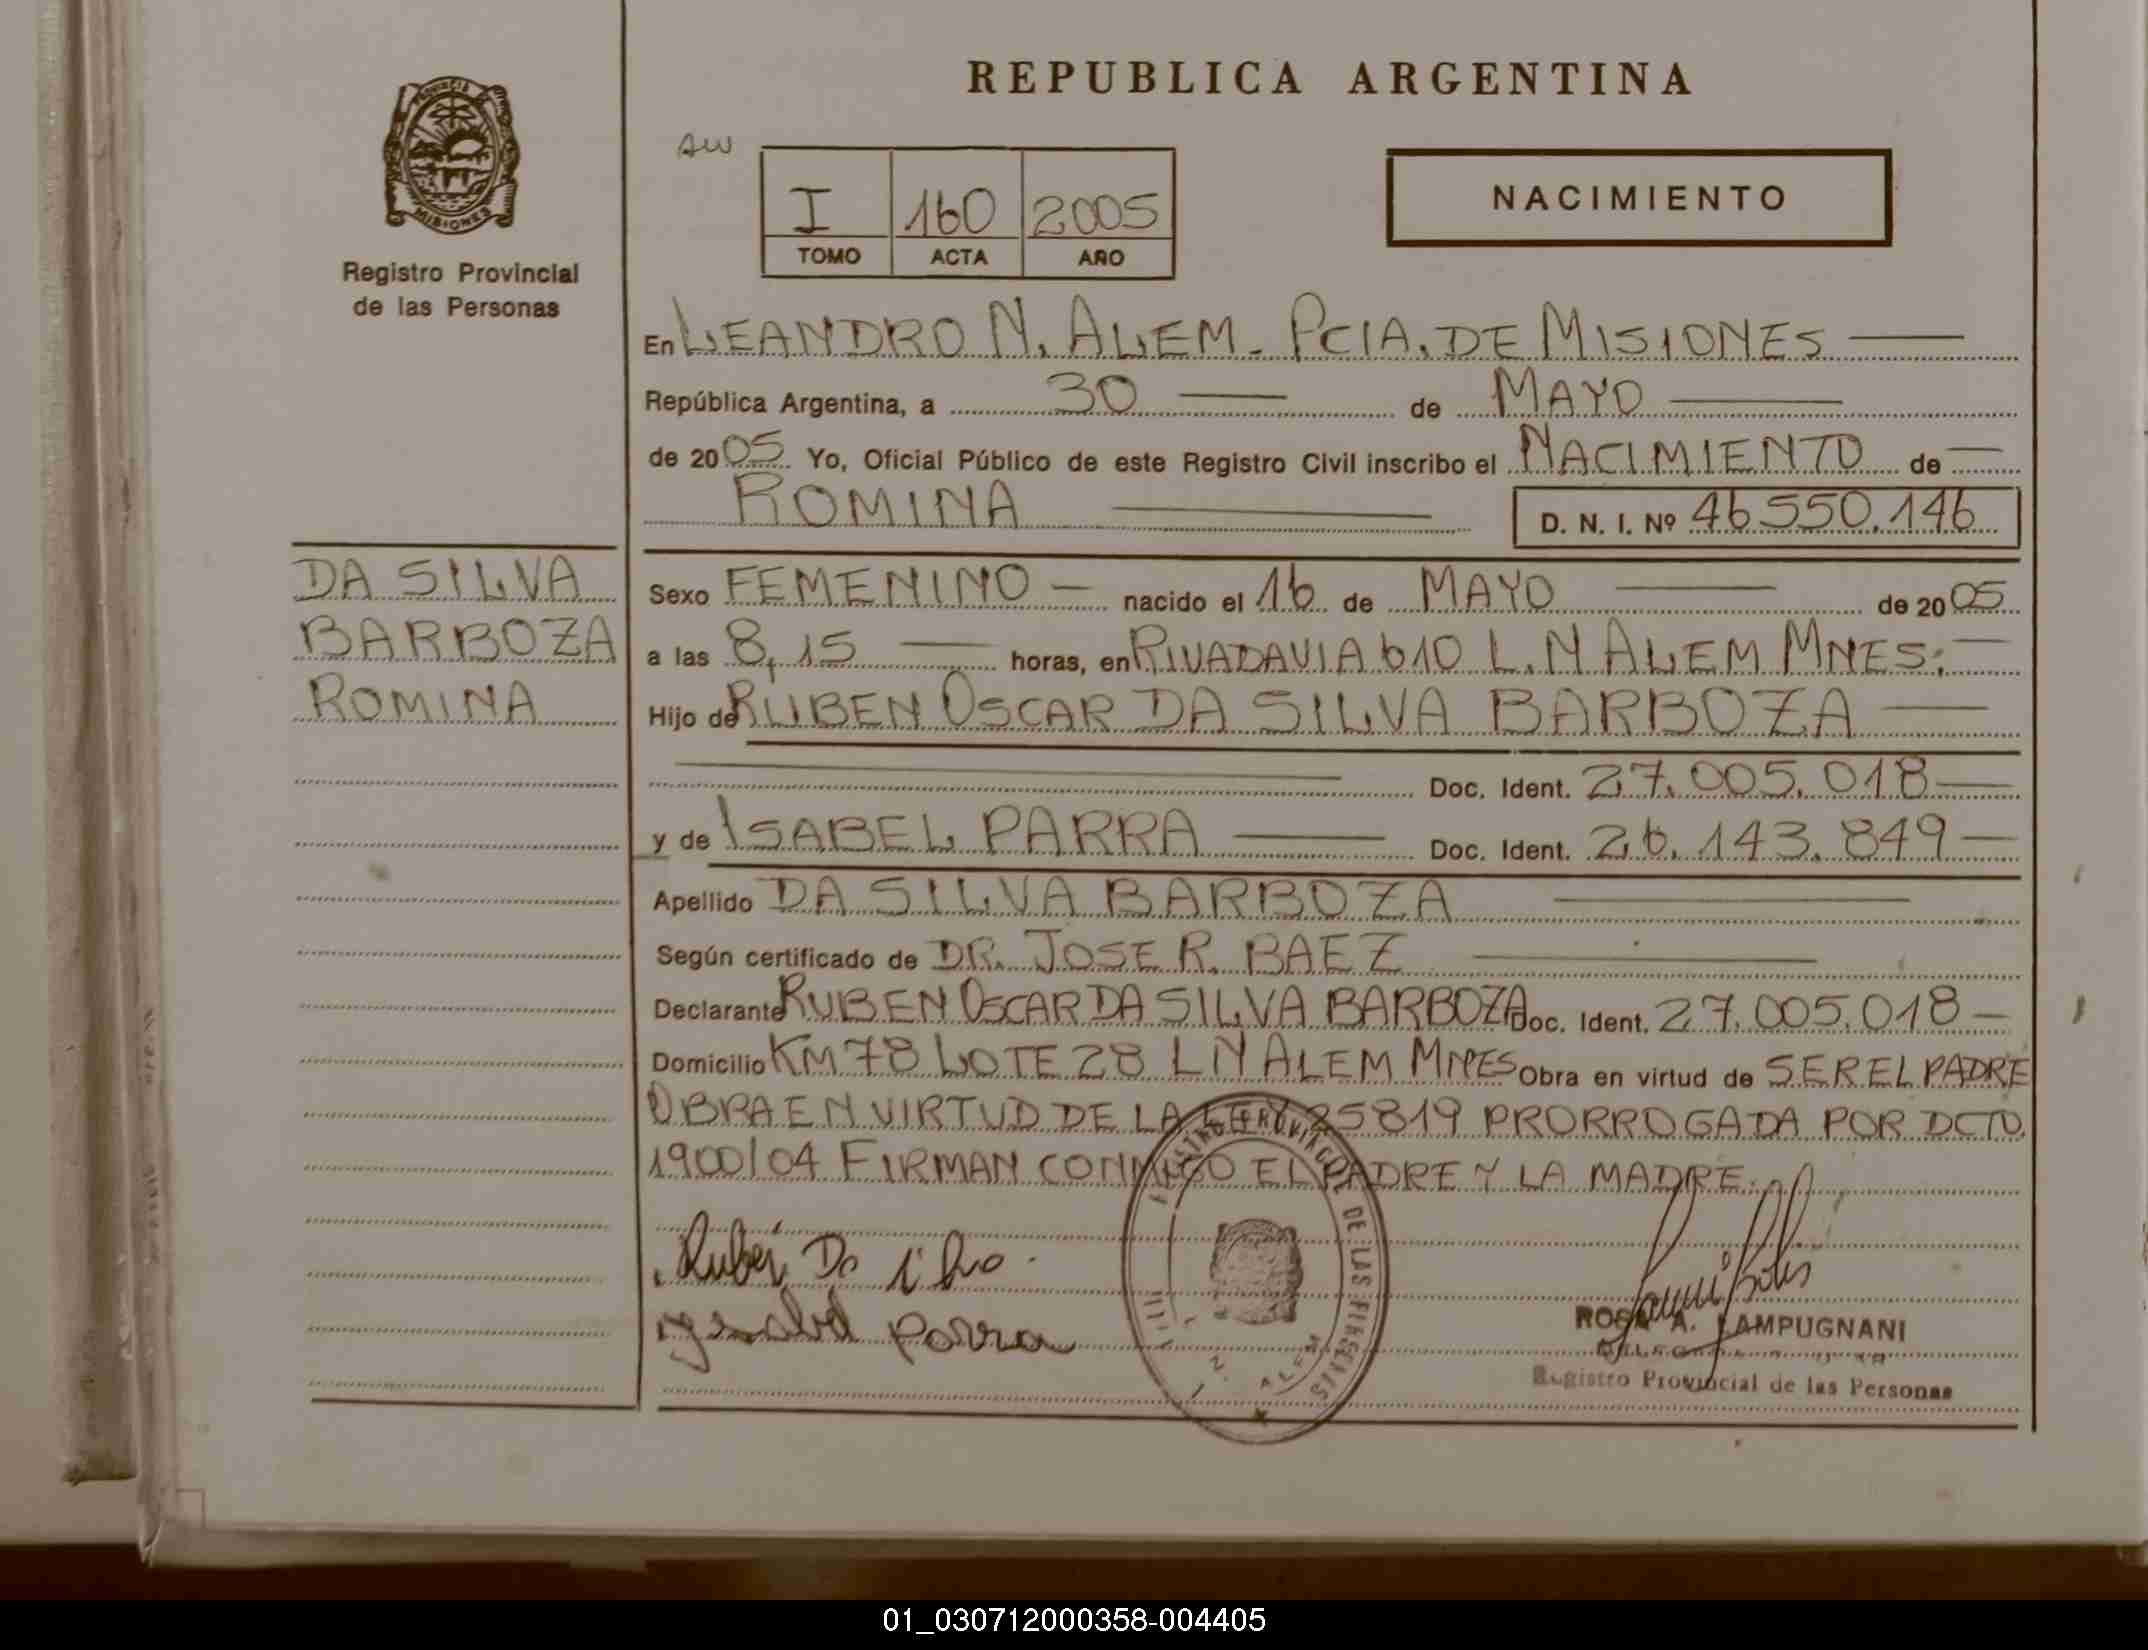 REPUBLICA ARGENTINA
PROVINCIA DE
MISIONES
Registro Provincial
de las Personas
AW
I 160 2005
TOMO ACTA AÑO
NACIMIENTO
En LEANDRO N. ALEM. PCIA. DE MISIONES
República Argentina, a 30 de MAYO
de 2005 Yo, Oficial Público de este Registro Civil inscribo el NACIMIENTO de
ROMINA D. N. I. Nº 46550.146
DA SILVA
BARBOZA
ROMINA
Sexo FEMENINO nacido el 16 de MAYO de 2005
a las 8,15 horas, en RIVADAVIA 610 L.N ALEM MNES.
Hijo de RUBEN OSCAR DA SILVA BARBOZA
Doc. Ident. 27.005.018
y de ISABEL PARRA Doc. Ident. 26.143.849
Apellido DA SILVA BARBOZA
Según certificado de DR. JOSE R. BAEZ
Declarante RUBEN OSCAR DA SILVA BARBOZA Doc. Ident. 27.005.018
Domicilio KM 78 LOTE 28 LN ALEM MNES Obra en virtud de SER EL PADRE
OBRA EN VIRTUD DE LA LEY 25819 PRORROGADA POR DCTO.
1900/04 FIRMAN CONMIGO EL PADRE Y LA MADRE.
Ruben Da
Parra
DE LAS
ALEM
ROSA A. LAMPUGNANI
Registro Provincial de las Personas
01_030712000358-004405